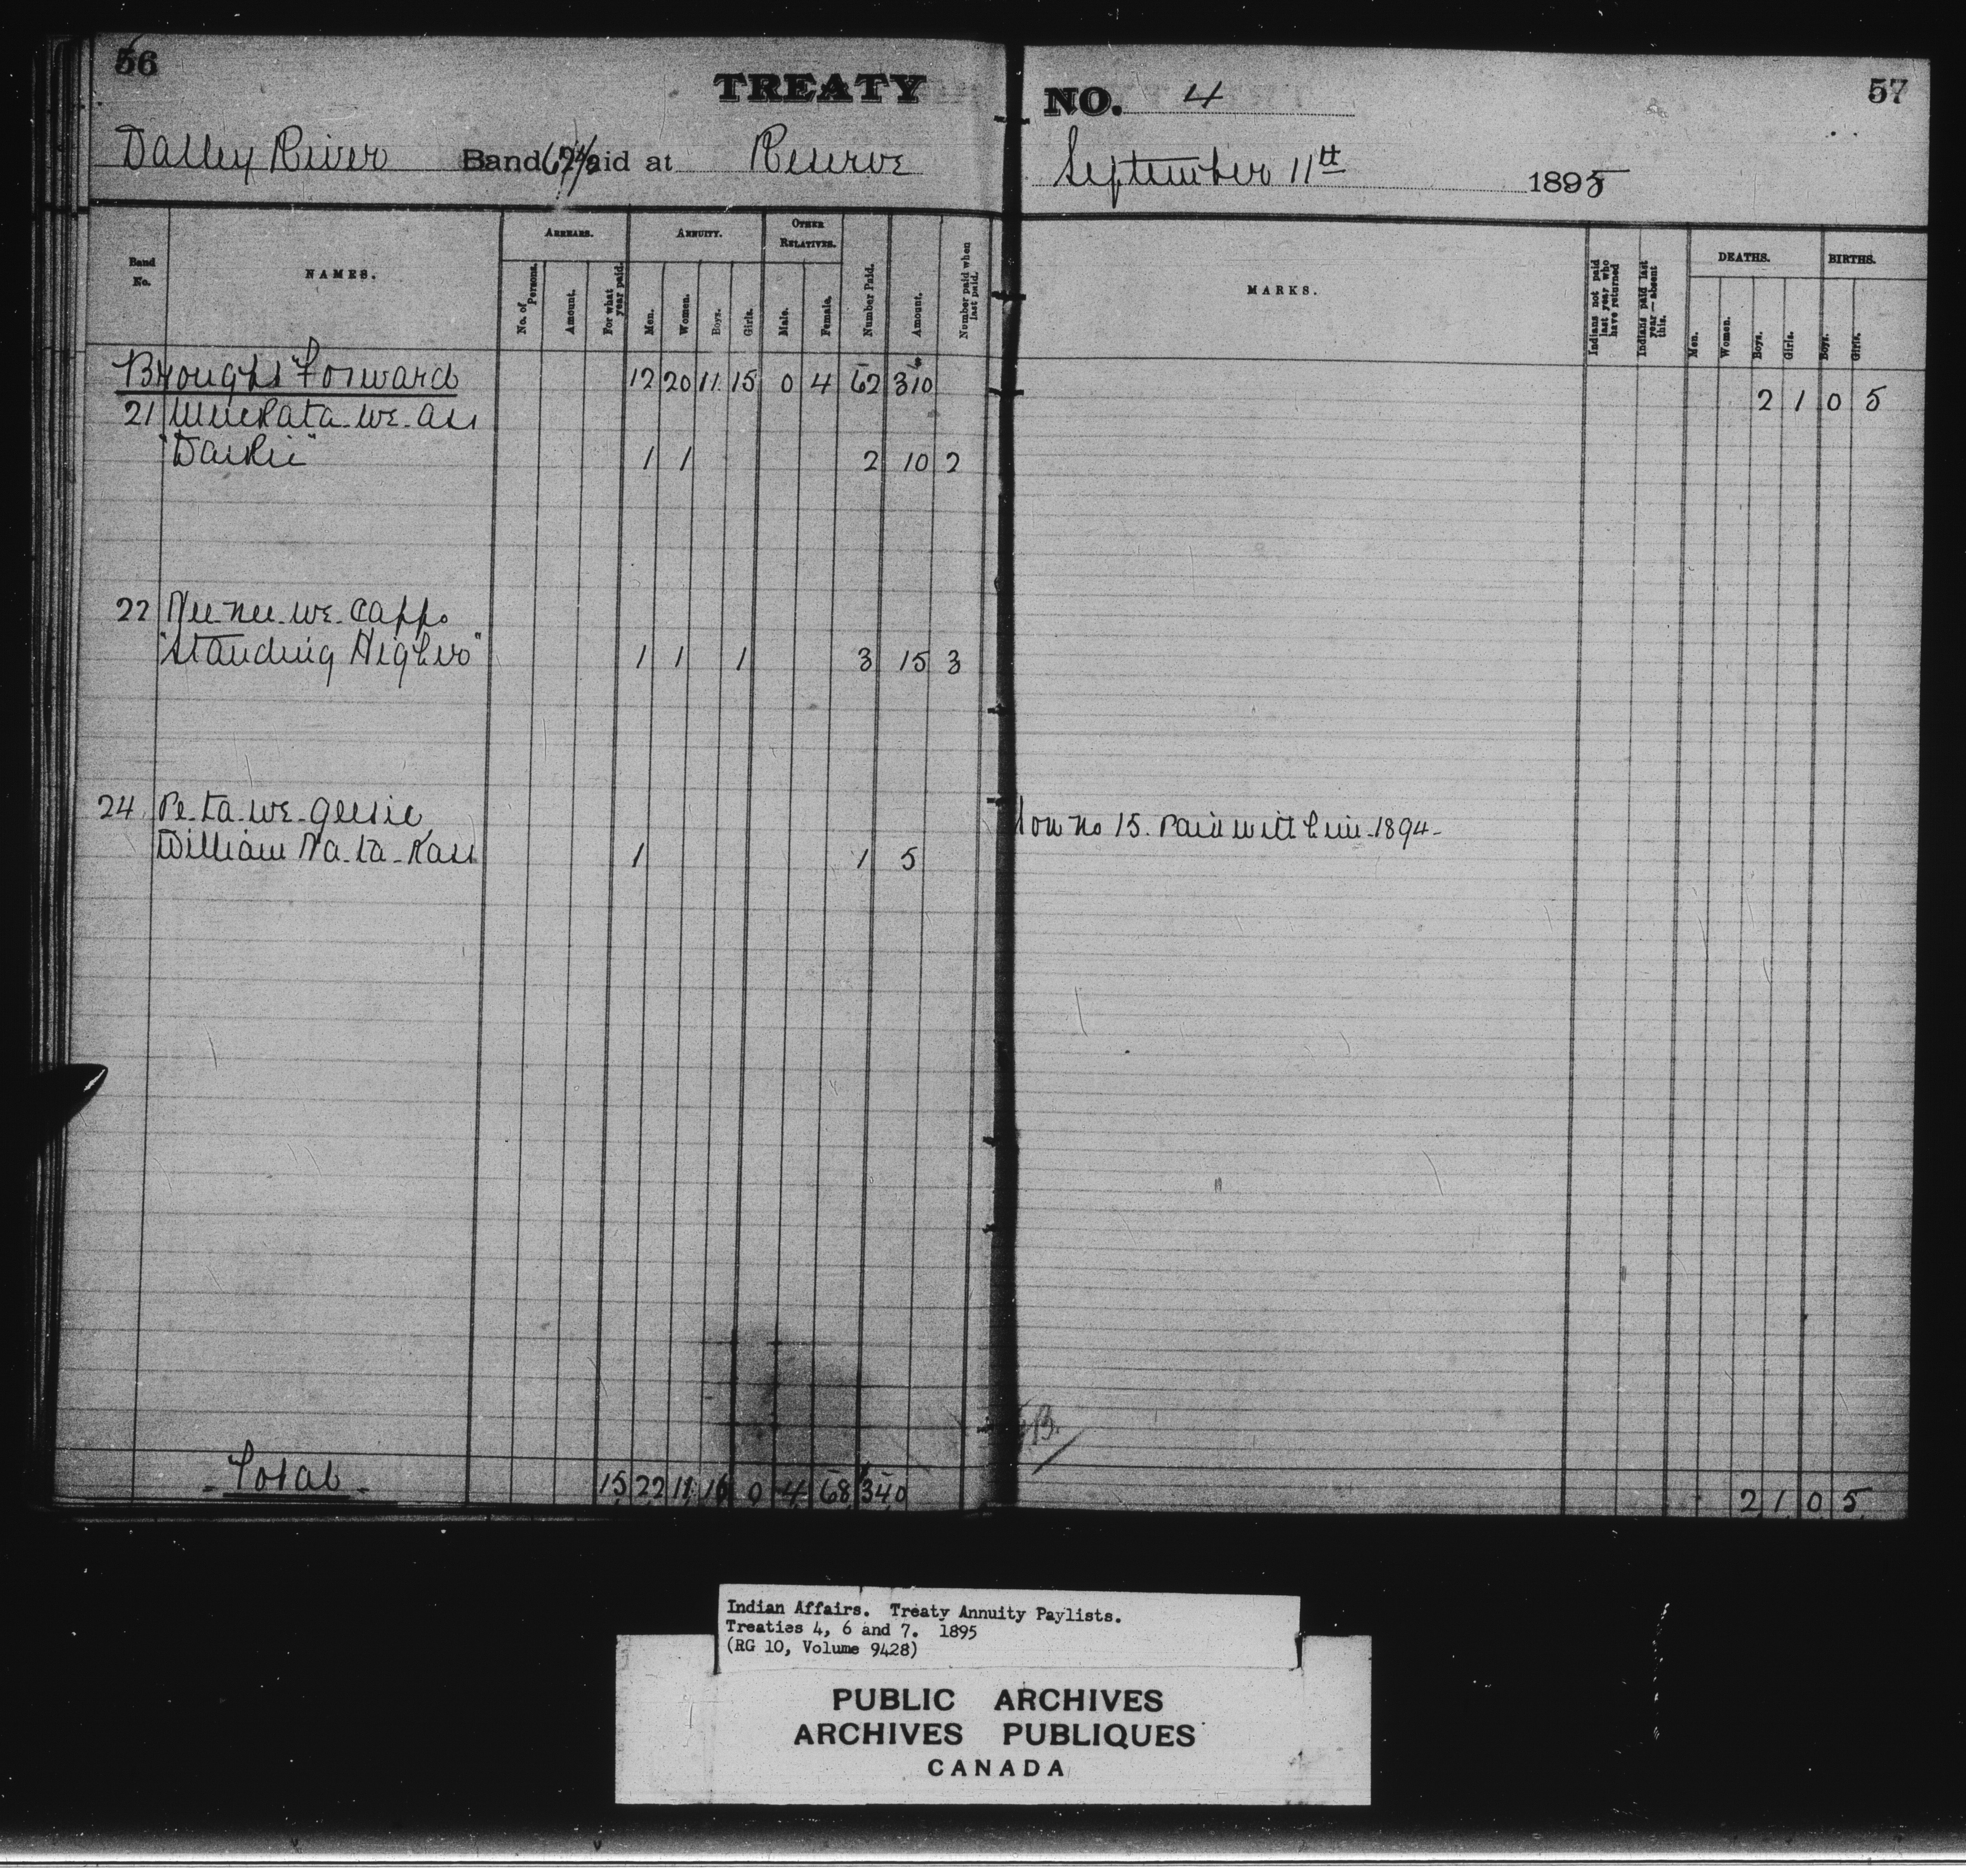 56
TREATY
NO. 4
57
Valley River Band 62½ Paid at Reserve
September 11th 1895
Band No.
NAMES.
ARREARS.
No. of Persons.
Amount.
For what year paid.
ANNUITY.
Men.
Women.
Boys.
Girls.
OTHER RELATIVES.
Male.
Female.
Number Paid.
Amount.
Number paid when last paid.
MARKS.
Indians not paid last year who have returned
Indians paid last year—absent this.
DEATHS.
Men.
Women.
Boys.
Girls.
BIRTHS.
Boys.
Girls.
Brought Forward 12 20 11 15 0 4 62 310 2 1 0 5
21
1 1 2 10 2
22 Nee-nee-we-capps
"Standing Higher" 1 1 1 3 15 3
24 Pe-ta-we-geesic
Son no 15. Paid with him 1894-
William Na-ta-Kau 1 1 5
Total 15 22 11 16 0 4 68 340 2 1 0 5
Indian Affairs. Treaty Annuity Paylists.
Treaties 4, 6 and 7. 1895
(RG 10, Volume 9428)
PUBLIC ARCHIVES
ARCHIVES PUBLIQUES
CANADA